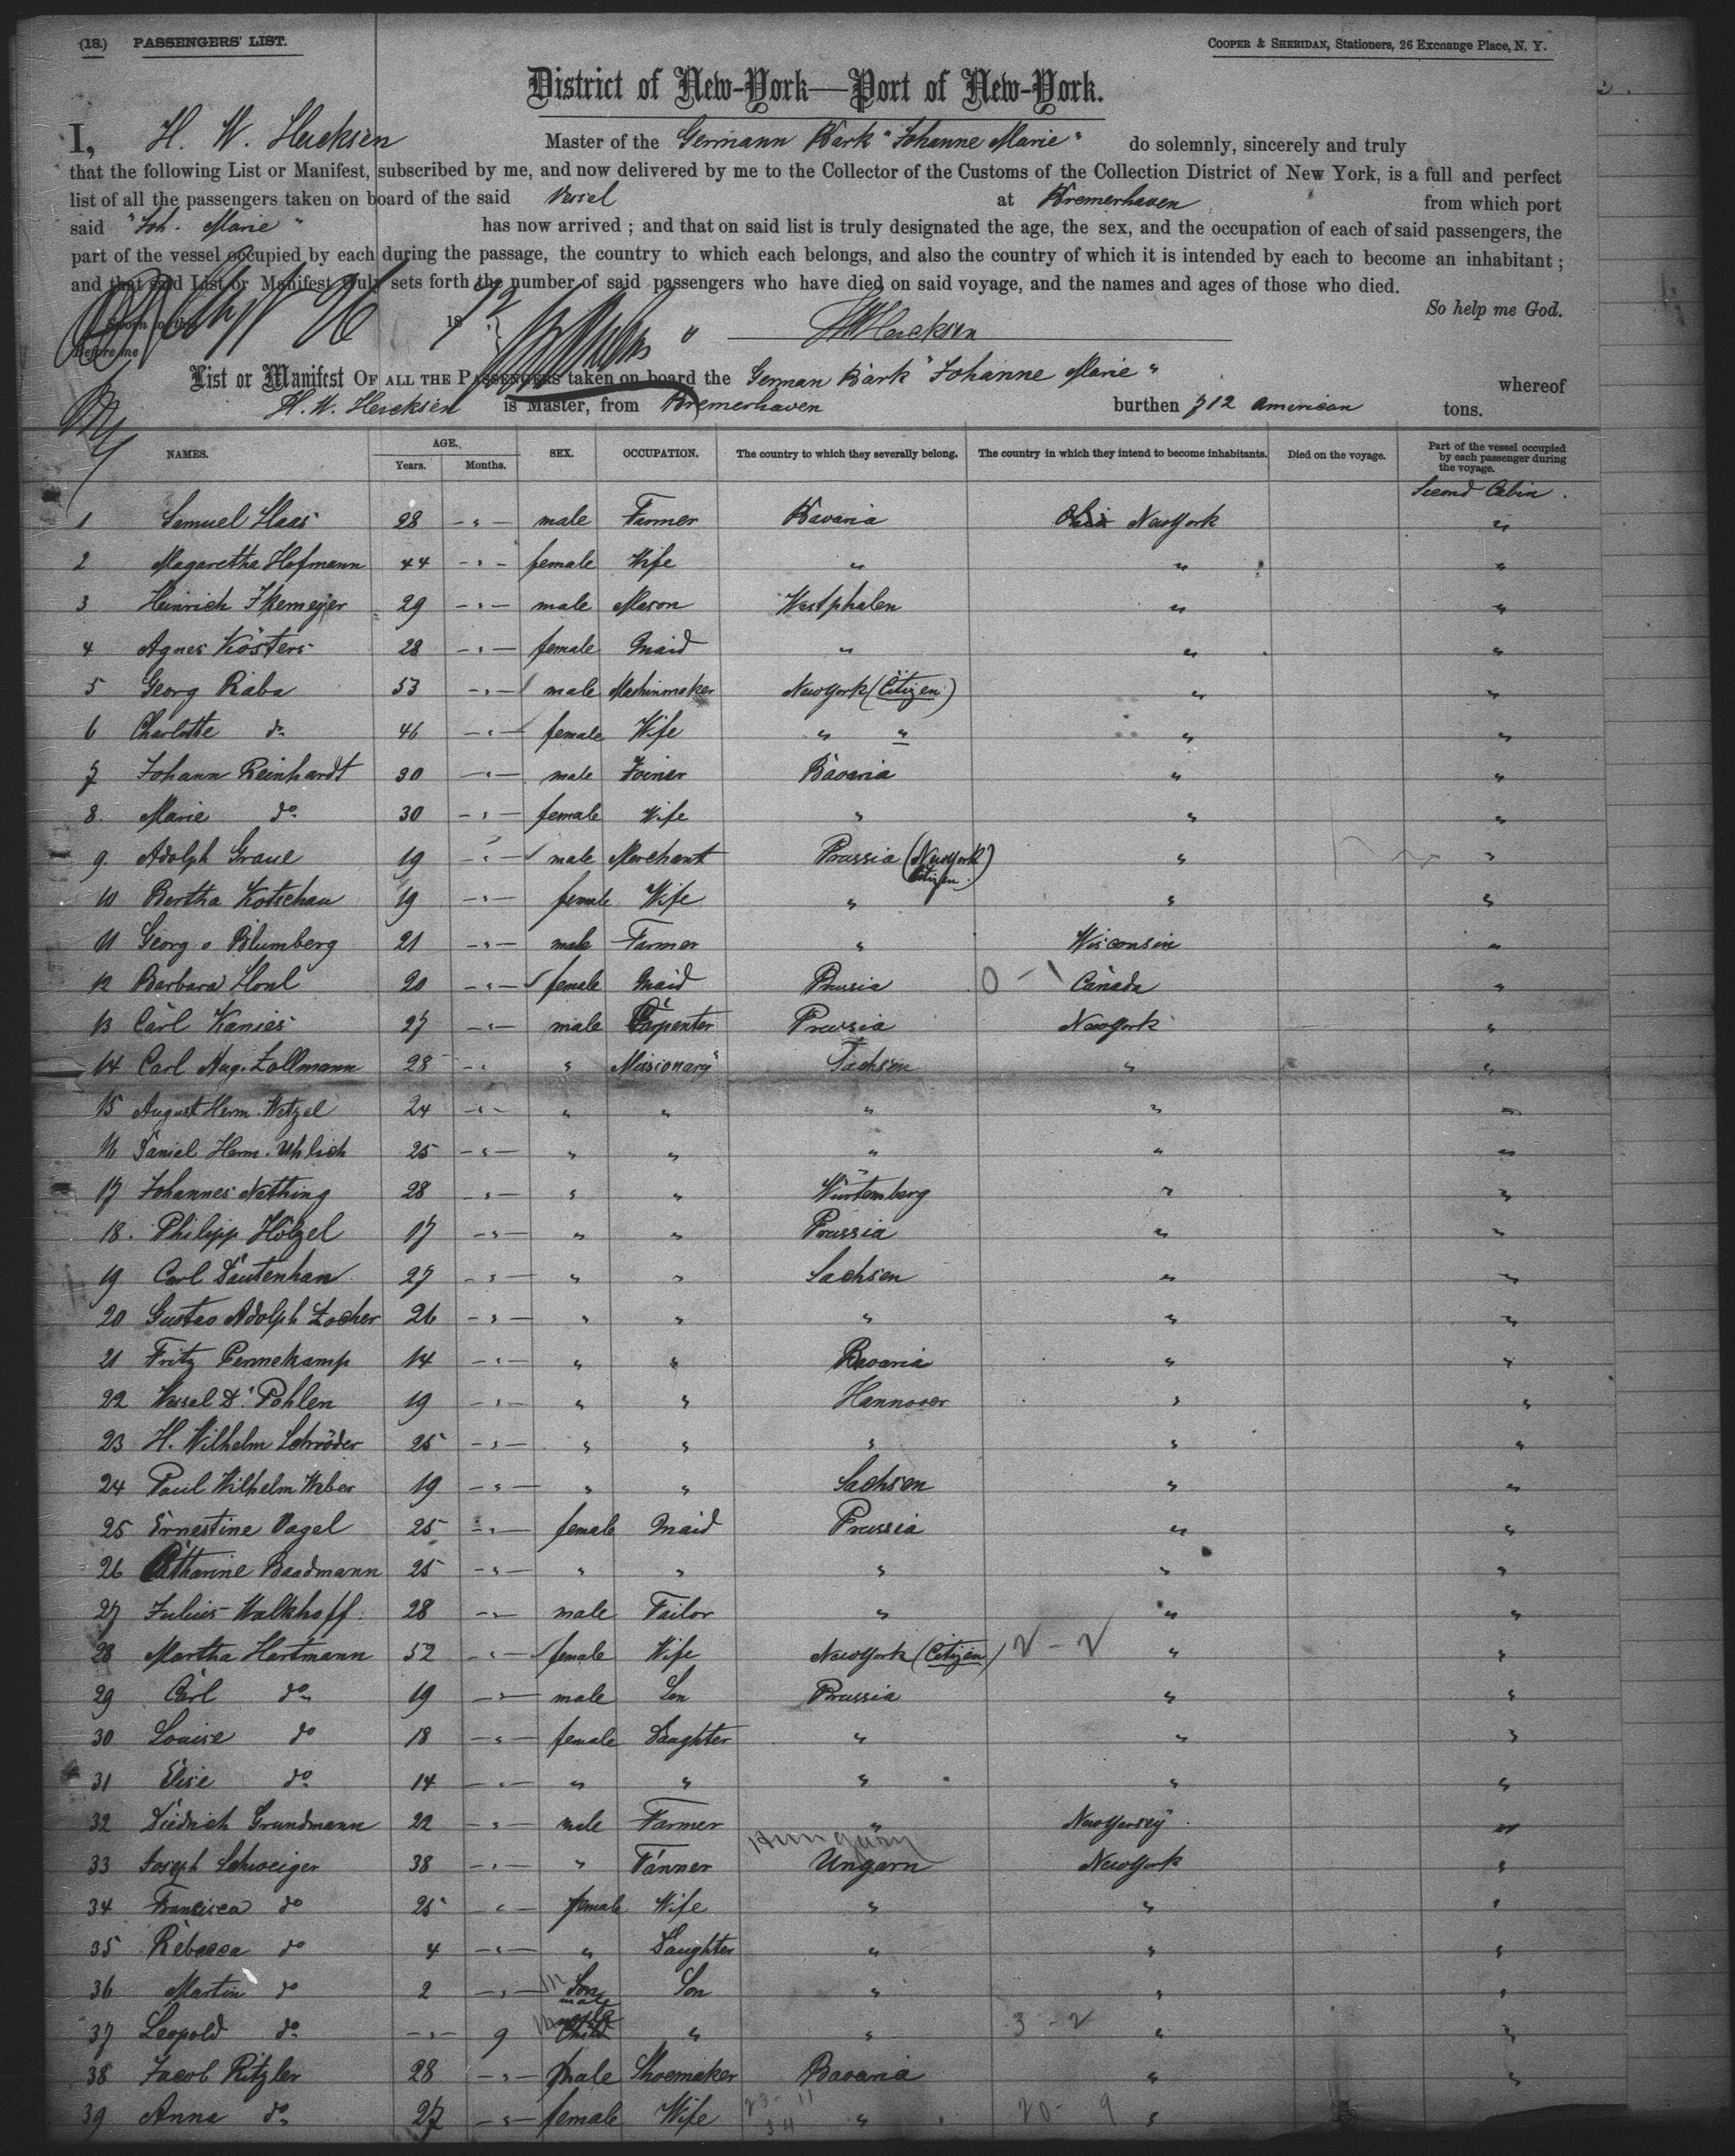 (18.) PASSENGERS' LIST. COOPER & SHERIDAN, Stationers, 26 Exchange Place, N. Y.
District of New-York—Port of New-York.
I, H. W. Hericksen Master of the Germann Bark "Johanne Marie" do solemnly, sincerely and truly
that the following List or Manifest, subscribed by me, and now delivered by me to the Collector of the Customs of the Collection District of New York, is a full and perfect
list of all the passengers taken on board of the said Vessel at Bremerhaven from which port
said "Joh. Marie" has now arrived ; and that on said list is truly designated the age, the sex, and the occupation of each of said passengers, the
part of the vessel occupied by each during the passage, the country to which each belongs, and also the country of which it is intended by each to become an inhabitant ;
and that said List or Manifest truly sets forth the number of said passengers who have died on said voyage, and the names and ages of those who died.
So help me God.
Sworn to this 26 1872
Before me
List or Manifest OF ALL THE PASSENGERS taken on board the German Bark "Johanne Marie" whereof
H. W. Hericksen is Master, from Bremerhaven burthen 712 American tons.
NAMES. AGE. Years. Months. SEX. OCCUPATION. The country to which they severally belong. The country in which they intend to become inhabitants. Died on the voyage. Part of the vessel occupied by each passenger during the voyage.
Second Cabin.
1 Samuel Haas 28 - " - male Farmer Bavaria Ohio NewYork "
2 Magaretha Hofmann 44 - " - female Wife " " "
3 Heinrich Ikemeyer 29 - " - male Mason Westphalen " "
4 Agnes Kösters 28 - " - female Maid " " "
5 Georg Raba 53 - " - male Mashinmaker NewYork (Citizen) " "
6 Charlotte do 46 - " - female Wife " " " "
7 Johann Reinhardt 30 - " - male Joiner Bavaria " "
8. Marie do 30 - " - female Wife " " "
9. Adolph Graue 19 - " - male Merchant Prussia (NewYork Citizen.) " "
10 Bertha Kotschau 19 - " - female Wife " " "
11 Georg v Blumberg 21 - " - male Farmer " Wisconsin "
12 Barbara Honl 20 - " - female Maid Prusia 0 - 1 Canada "
13 Carl Kanies 27 - " - male Carpenter Prussia NewYork "
14 Carl Aug. Zollmann 28 - " " Missionary Sachsen " "
15 August Herm. Wetzel 24 - " - " " " " "
16 Daniel Herm. Uhlich 25 - " - " " " " "
17 Johannes Nething 28 - " - " " Würtemberg " "
18. Philipp Hölzel 17 - " - " " Prussia " "
19 Carl Dautenhan 27 - " - " " Sachsen " "
20 Gustav Adolph Zocher 26 - " - " " " " "
21 Fritz Pennekamp 14 - " - " " Bavaria " "
22 Wessel D. Pohlen 19 - " - " " Hannover " "
23 H. Wilhelm Schröder 25 - " - " " " " "
24 Paul Wilhelm Weber 19 - " - " " Sachsen " "
25 Ernestine Vagel 25 - " - female Maid Prussia " "
26 Catharine Baadmann 25 - " - " " " " "
27 Julius Walkhoff 28 - " - male Tailor " " "
28 Martha Hartmann 52 - " - female Wife NewYork (Citizen) 2 - 2 " "
29 Carl do 19 - " - male Son Prussia " "
30 Louise do 18 - " - female Daughter " " "
31 Elise do 14 - " - " " " " "
32 Diedrich Grundmann 22 - " - male Farmer " NewYersey "
Hungary
33 Joseph Schweiger 38 - " - " Tanner Ungarn NewYork "
34 Francisca do 25 - " - female Wife " " "
35 Rebecca do 4 - " - " Daughter " " "
36 Martin do 2 - " - m Son male Son " " "
37 Leopold do - " - 9 Child " " 3 - 2 " "
38 Jacob Ritzler 28 - " - male Shoemaker Bavaria " "
39 Anna do 27 - " - female Wife 23 - 11 34 " 20 - 9 "